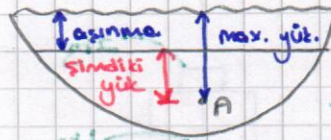 aşınma
max. yük.
şimdiki
yük
A